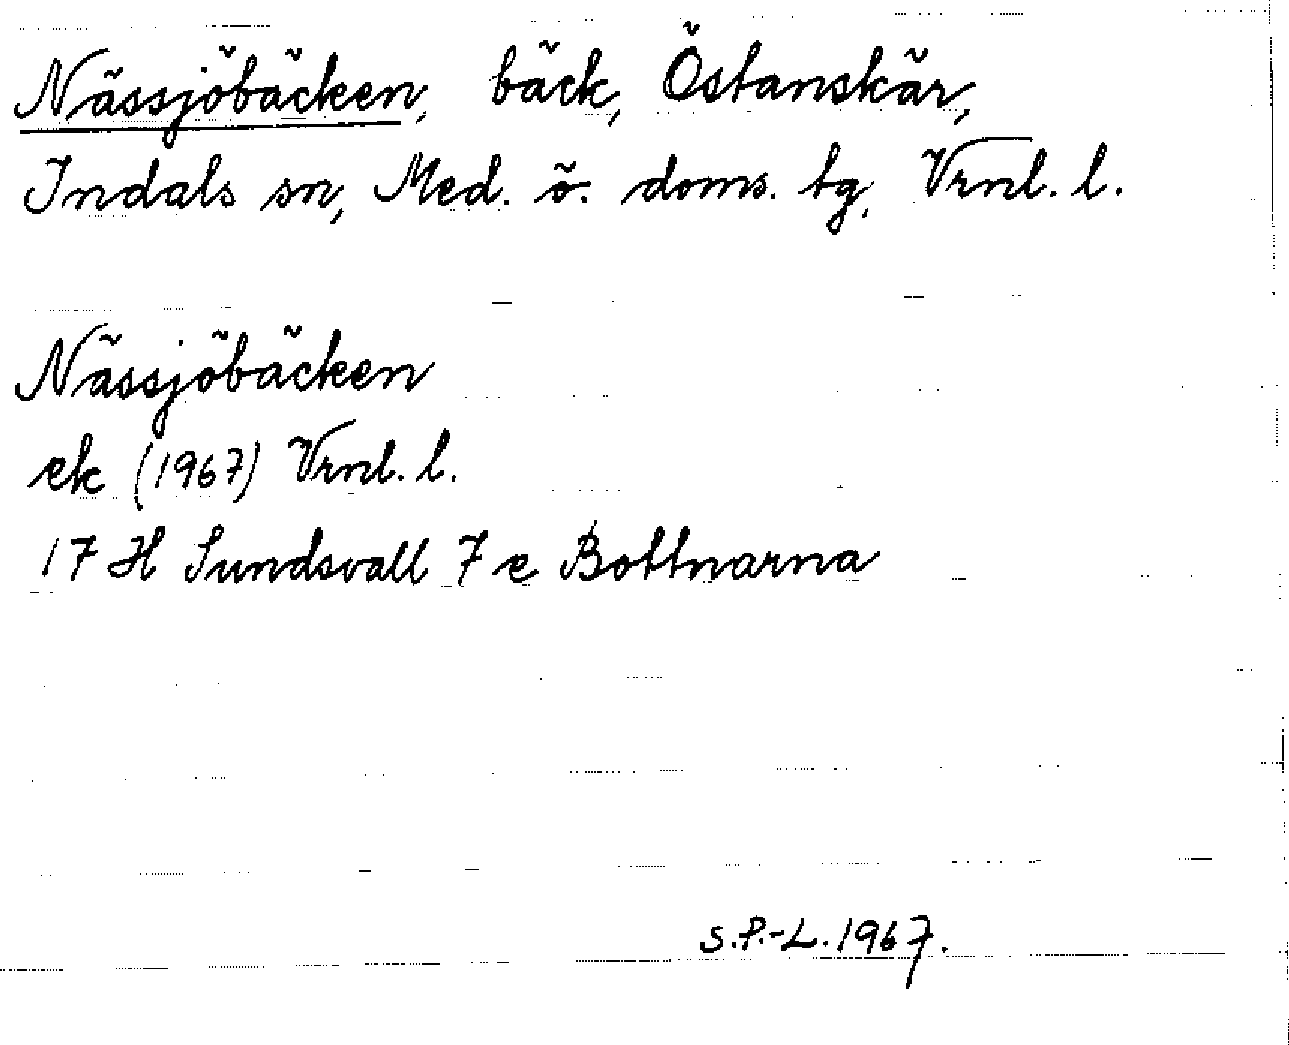 Nässjöbäcken, bäck, Östanskär,
Indals sn, Med. ö. doms. tg, Vrnl. l.
Nässjöbäcken
ek (1967) Vrnl. l.
17 H Sundsvall 7 e Bottnarna
S.P.-L. 1967.